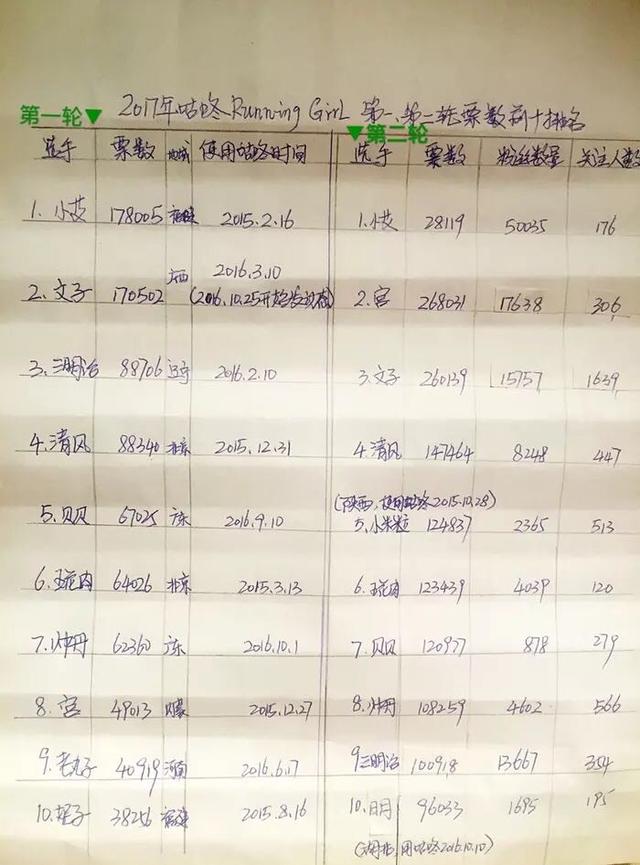 2017年咕咚Running Girl 第一、第二轮票数前十排名
第一轮▼
▼第二轮
选手 票数 地域 使用咕咚时间 选手 票数 粉丝数量 关注人数
1.小艾 178005 福建 2015.2.16 1.小艾 28119 50035 176
2.文子 170502 广西 2016.3.10 2.宫 268031 17638 306
(2016.10.25开始发视频)
3.三明治 88706 辽宁 2016.2.10 3.文子 260139 15757 1639
4.清风 88340 北京 2015.12.31 4.清风 147464 8248 447
(陕西,使用咕咚2015.10.28)
5.贝贝 67025 广东 2016.9.10 5.小米粒 124837 2365 513
6. 64026 北京 2015.3.13 6. 123439 4039 120
7. 62360 广东 2016.10.1 7.贝贝 120977 878 279
8.宫 49013 内蒙 2015.12.27 8. 108259 4602 566
9.老丸子 40919 河南 2016.6.17 9三明治 100918 13667 354
10.程子 38256 福建 2015.8.16 10.日月 96033 1695 195
(湖北,用咕咚2016.10.10)